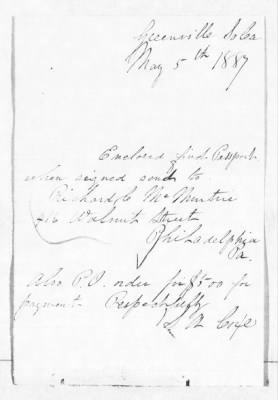 Greenville So Ca
May 5th 1887
Enclosed find Passport
when signed send to
Richard C McMurtrie
416 Walnut Street
Philadelphia
Pa.
Also P.O. order for $5.00 for
payment Respectfully